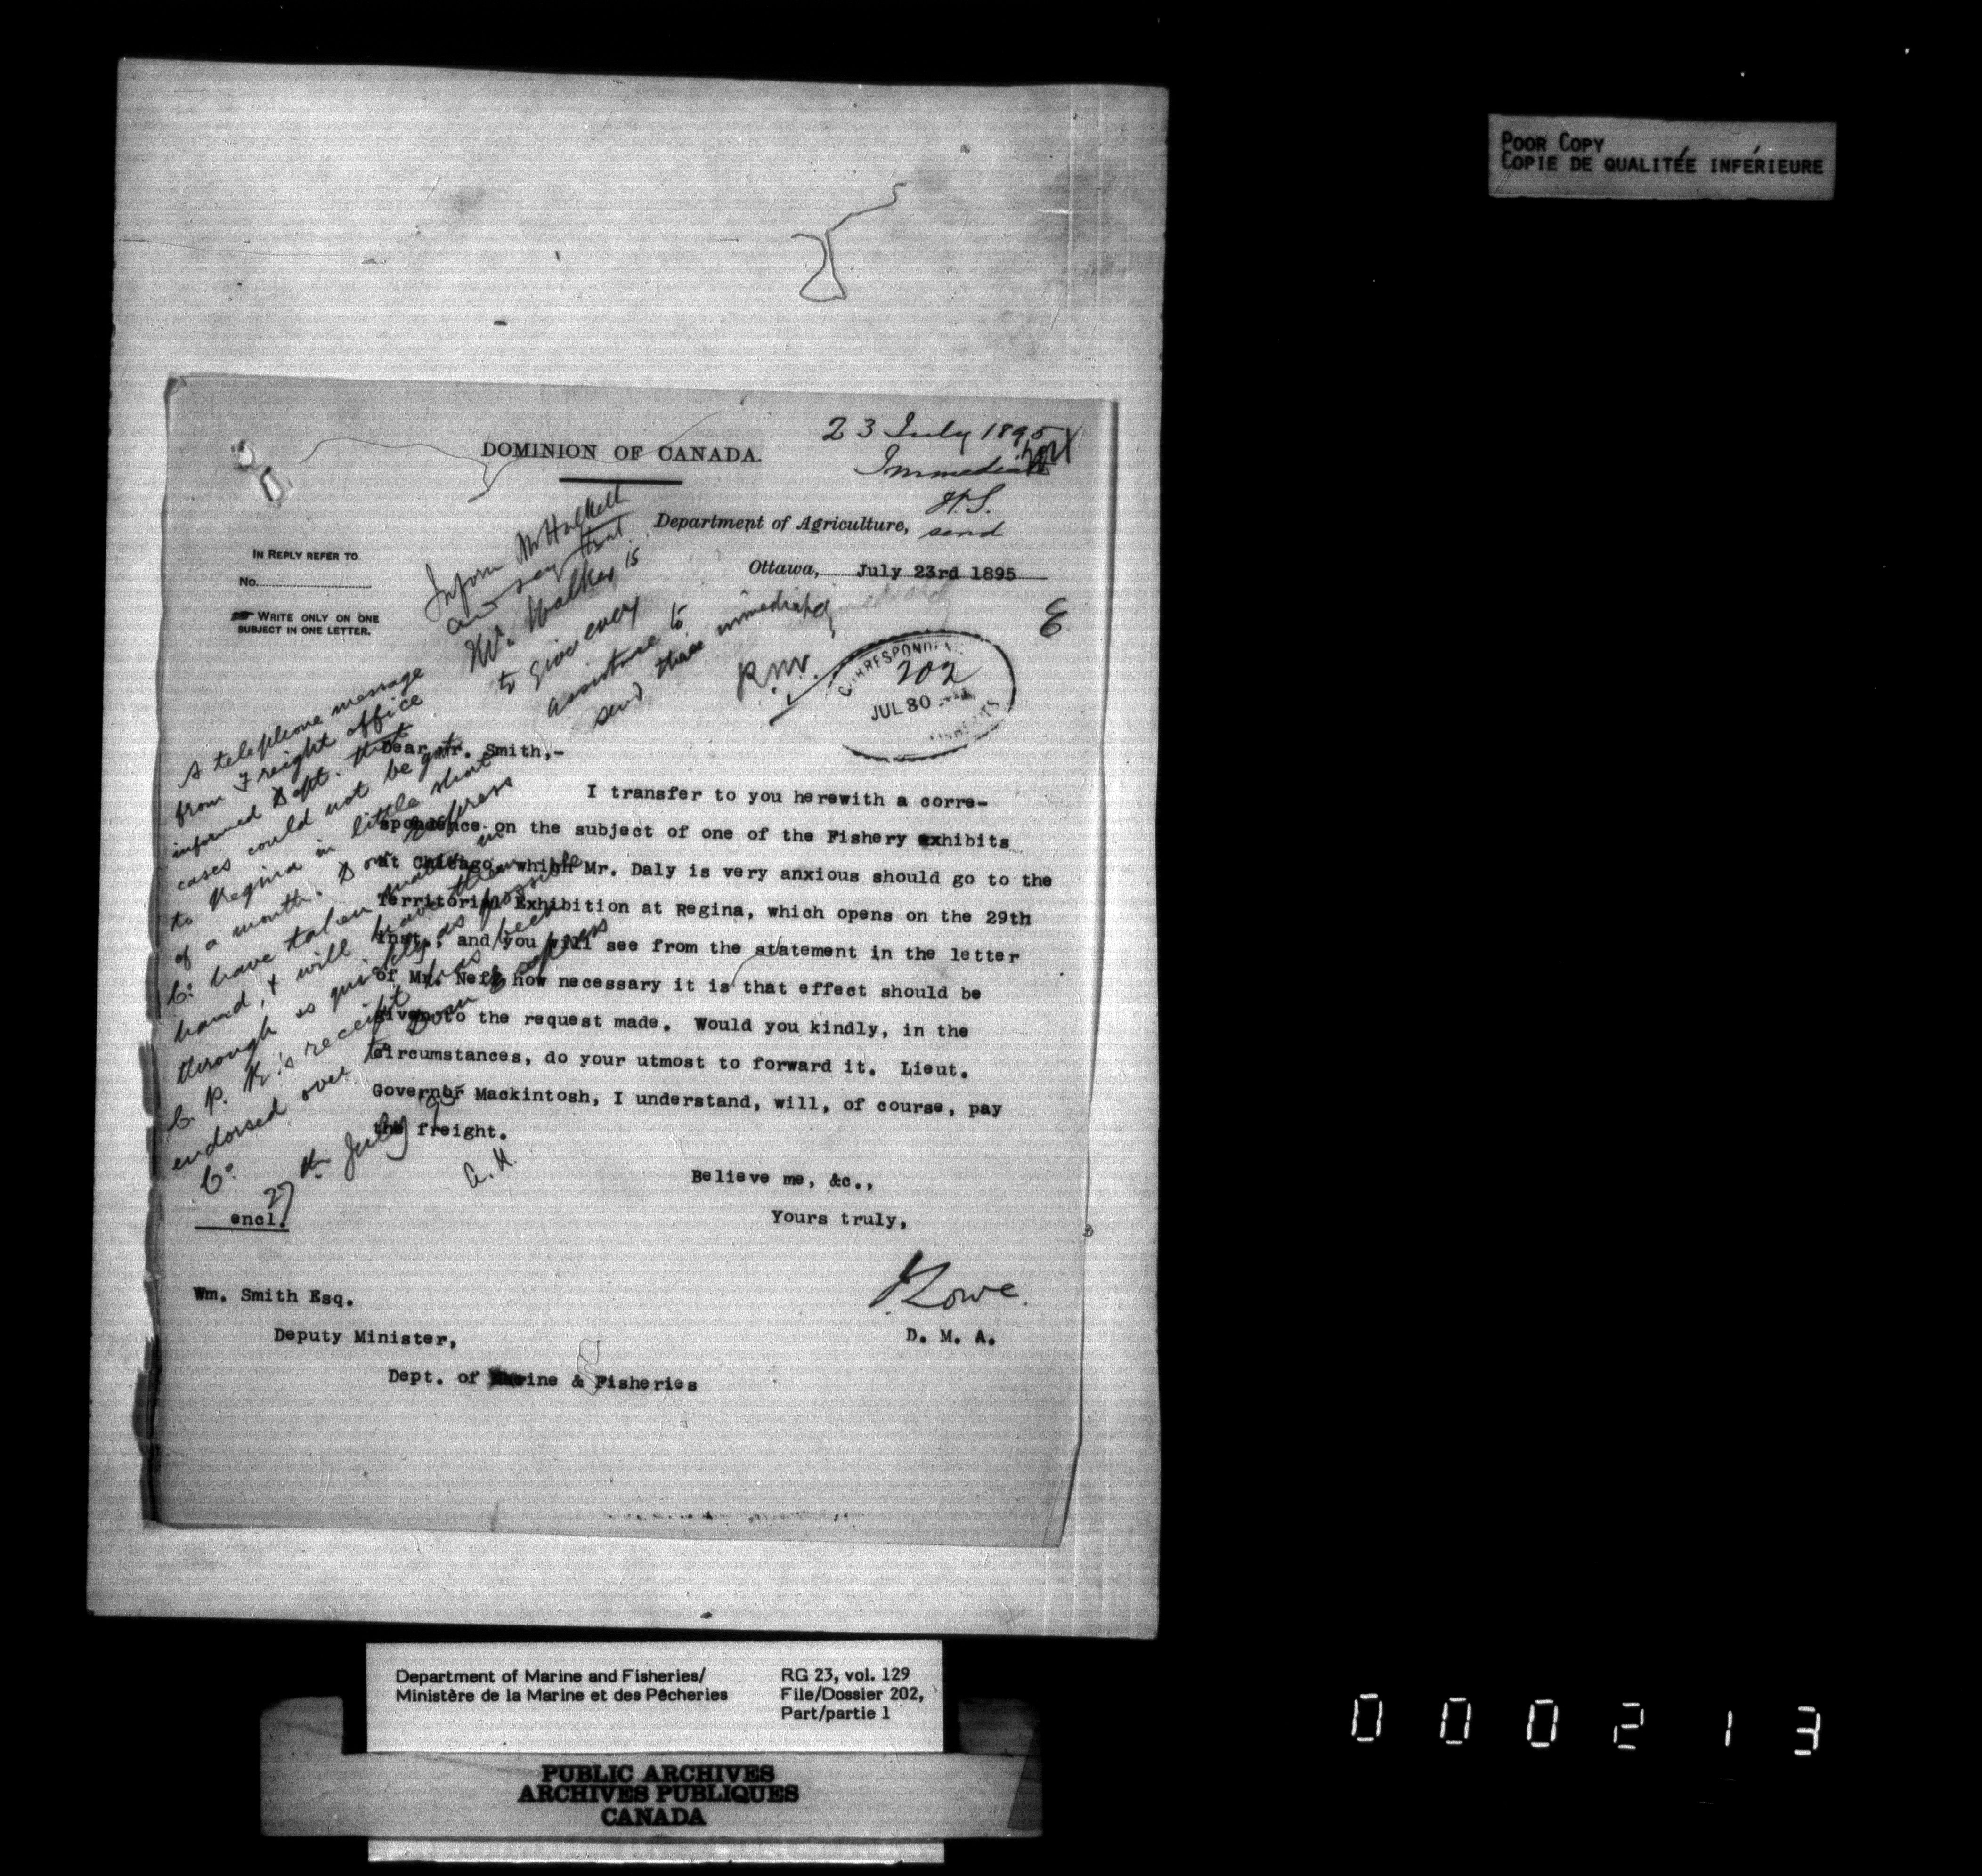 POOR COPY
COPIE DE QUALITÉE INFÉRIEURE
23 July 1895
Immediate
DOMINION OF CANADA.
H.S.
send
Department of Agriculture,
IN REPLY REFER TO
No.
Ottawa, July 23rd 1895
WRITE ONLY ON ONE
SUBJECT IN ONE LETTER.
Inform Mr Halkett
and say that
Mr. Walker is
to give every
assistance to
send these immediately
R.N.V.
E
CORRESPONDENCE
202
JUL 30
A telephone message
from Freight office
informed Dept. that
cases could not be got
to Regina in little short
of a month. Dom Express
Co. have taken matter in
hand, & will have them
through as quickly as possible
C. P. R.'s receipt has been
endorsed over to Dom Express
Co.
27th July 95
A. H.
Dear Mr. Smith,-
I transfer to you herewith a corre-
spondence on the subject of one of the Fishery exhibits
at Chicago which Mr. Daly is very anxious should go to the
Territorial Exhibition at Regina, which opens on the 29th
inst., and you will see from the statement in the letter
of Mr. Neff how necessary it is that effect should be
given to the request made. Would you kindly, in the
circumstances, do your utmost to forward it. Lieut.
Governor Mackintosh, I understand, will, of course, pay
the freight.
Believe me, &c.,
Yours truly,
encl.
J Lowe.
D. M. A.
Wm. Smith Esq.
Deputy Minister,
Dept. of Marine & Fisheries
Department of Marine and Fisheries/
Ministère de la Marine et des Pêcheries
RG 23, vol. 129
File/Dossier 202,
Part/partie 1
PUBLIC ARCHIVES
ARCHIVES PUBLIQUES
CANADA
000213